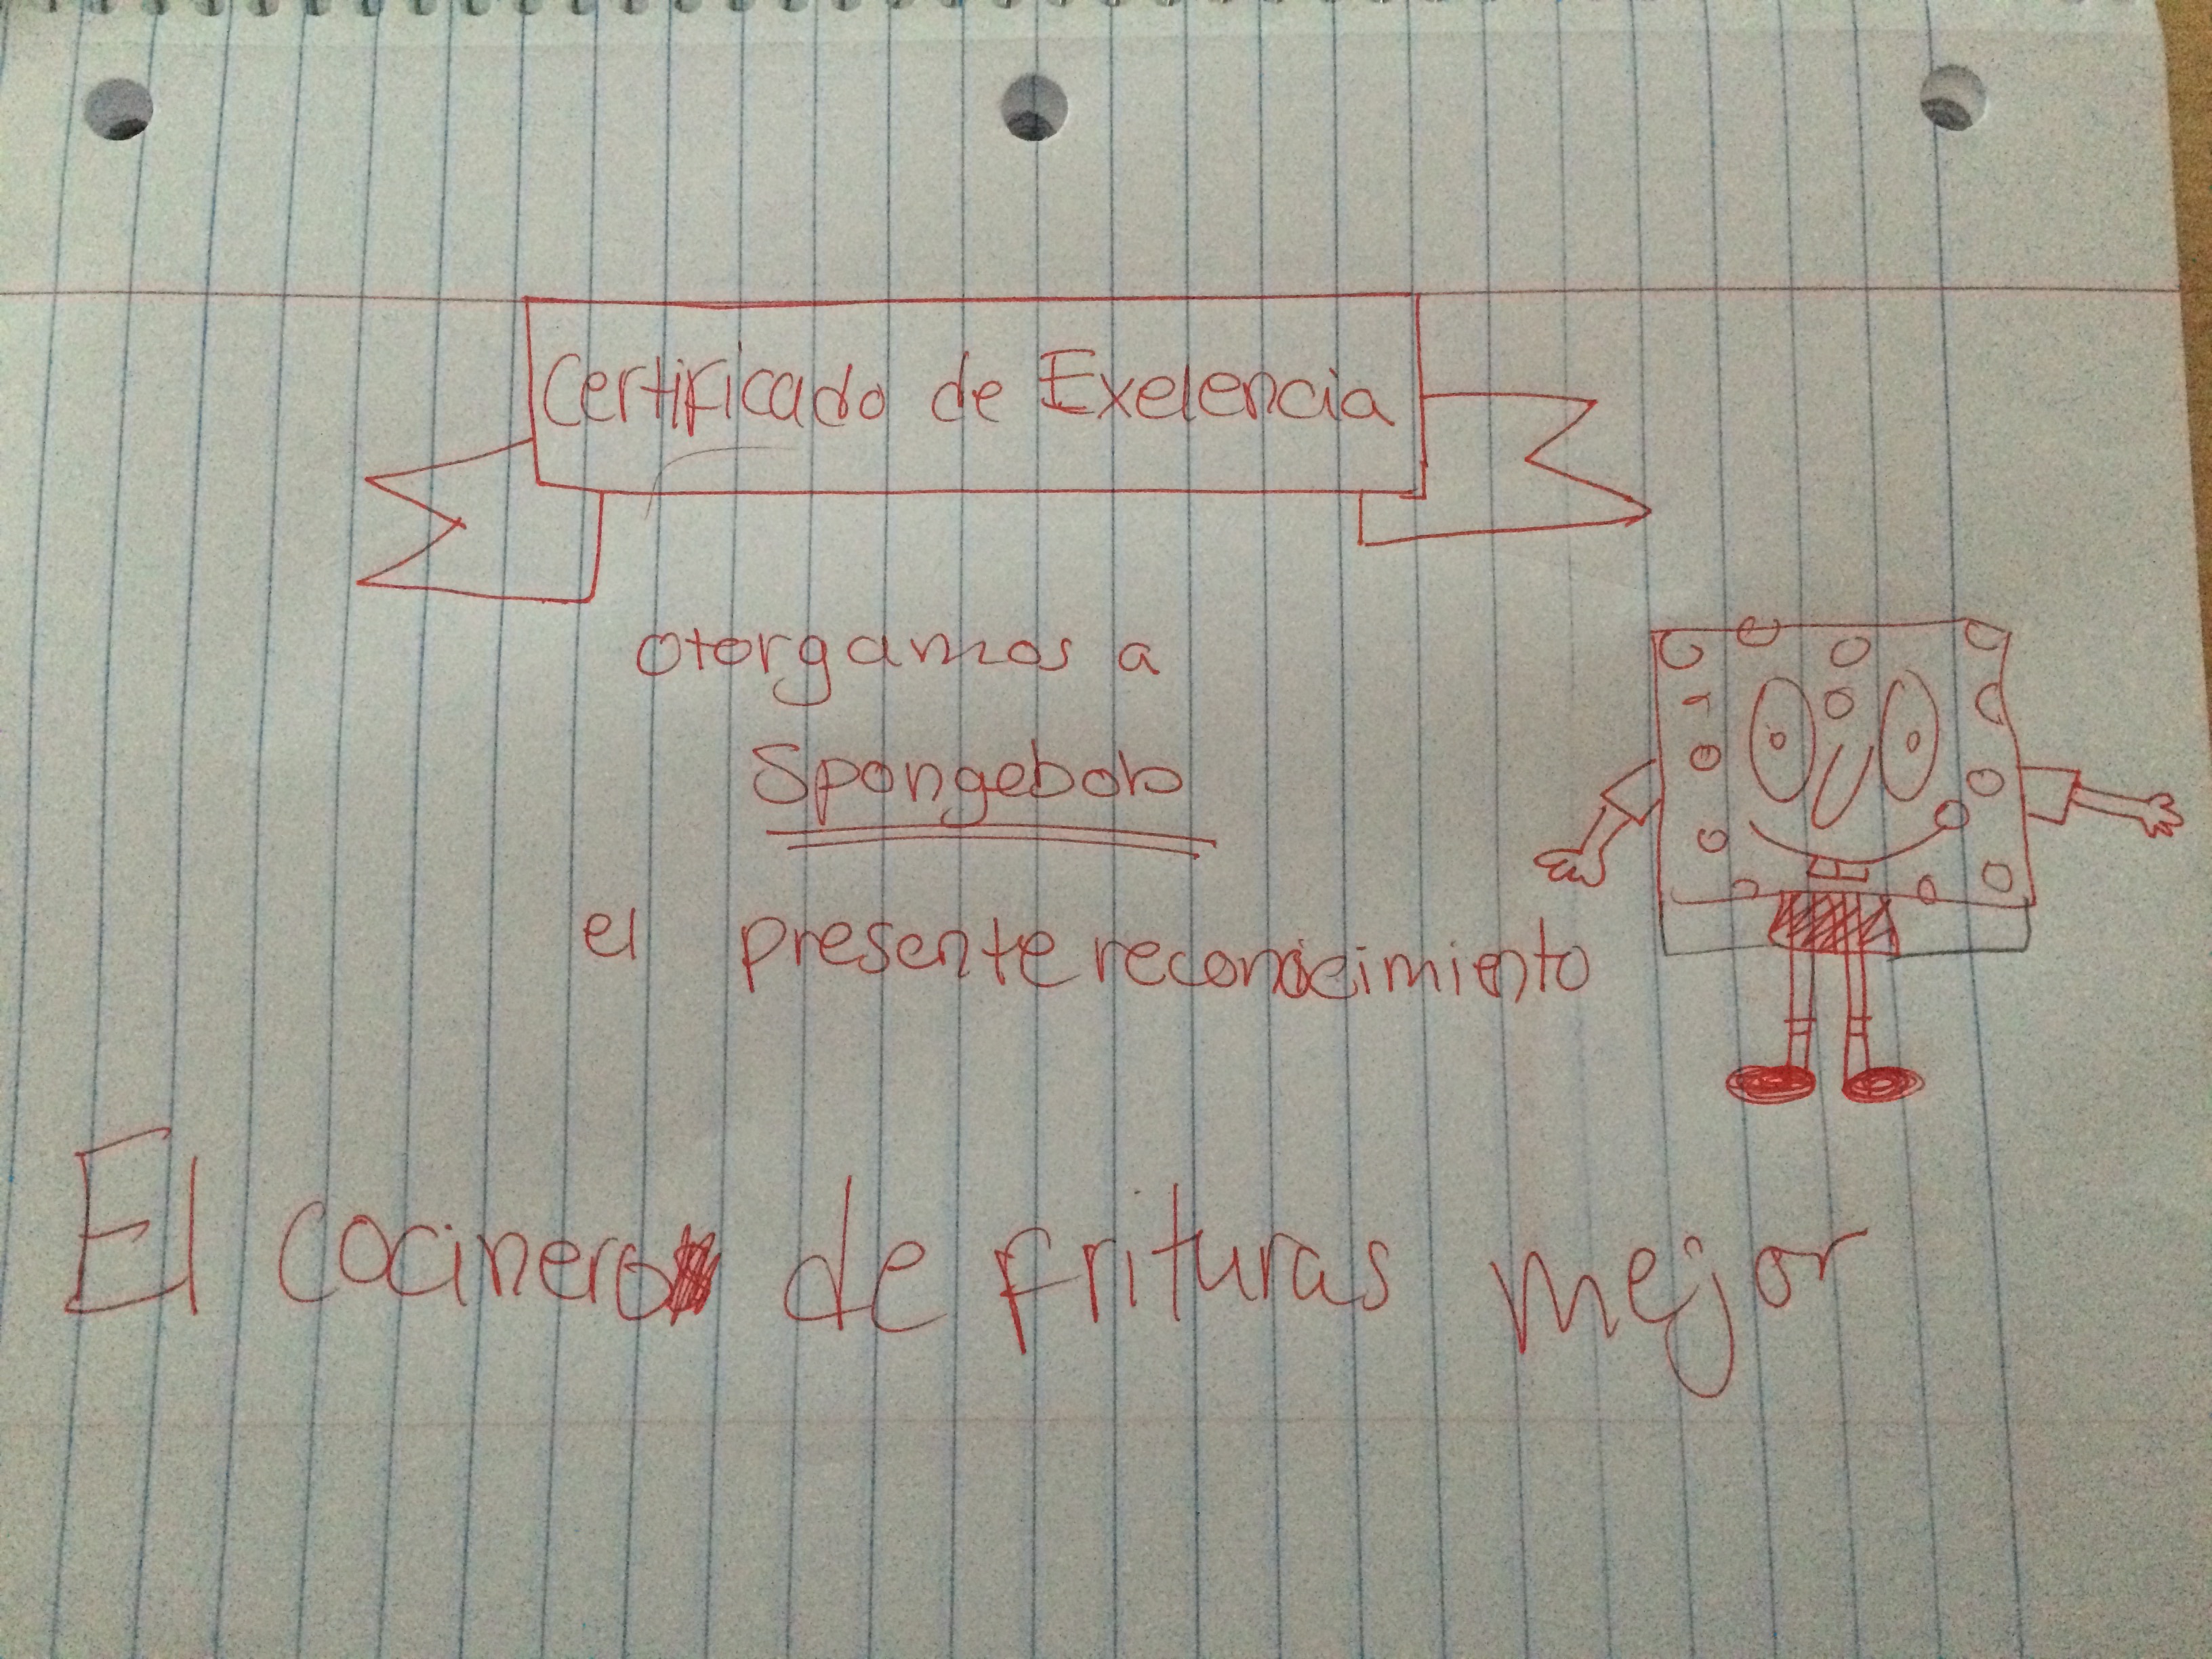 Certificado de Exelencia
otorgamos a
Spongebob
el presente reconocimiento
El cocinero de frituras mejor